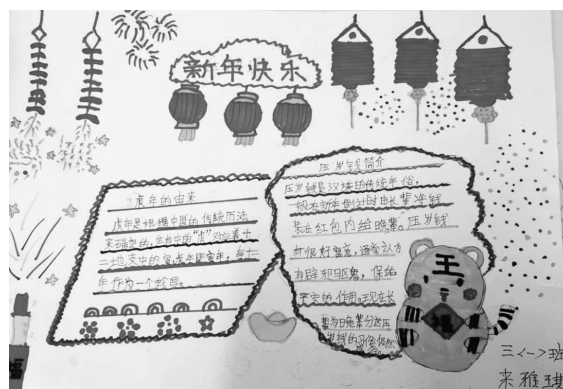 新年快乐
虎年的由来
虎年是根据中国的传统历法
来确定的,生肖中的“虎”对应着十
二地支中的寅,虎年即寅年,每十二
年作为一个轮回。
压岁钱简介
压岁钱是汉族的传统年俗,
一般在新年倒计时由长辈将钱
装在红包内给晚辈。压岁钱
有很好寓意,通常认为
有辟邪驱鬼,保佑
平安的作用。现在长
辈为晚辈分送压
岁钱的习俗仍然
王
福
福
三<一>班
来雅琪